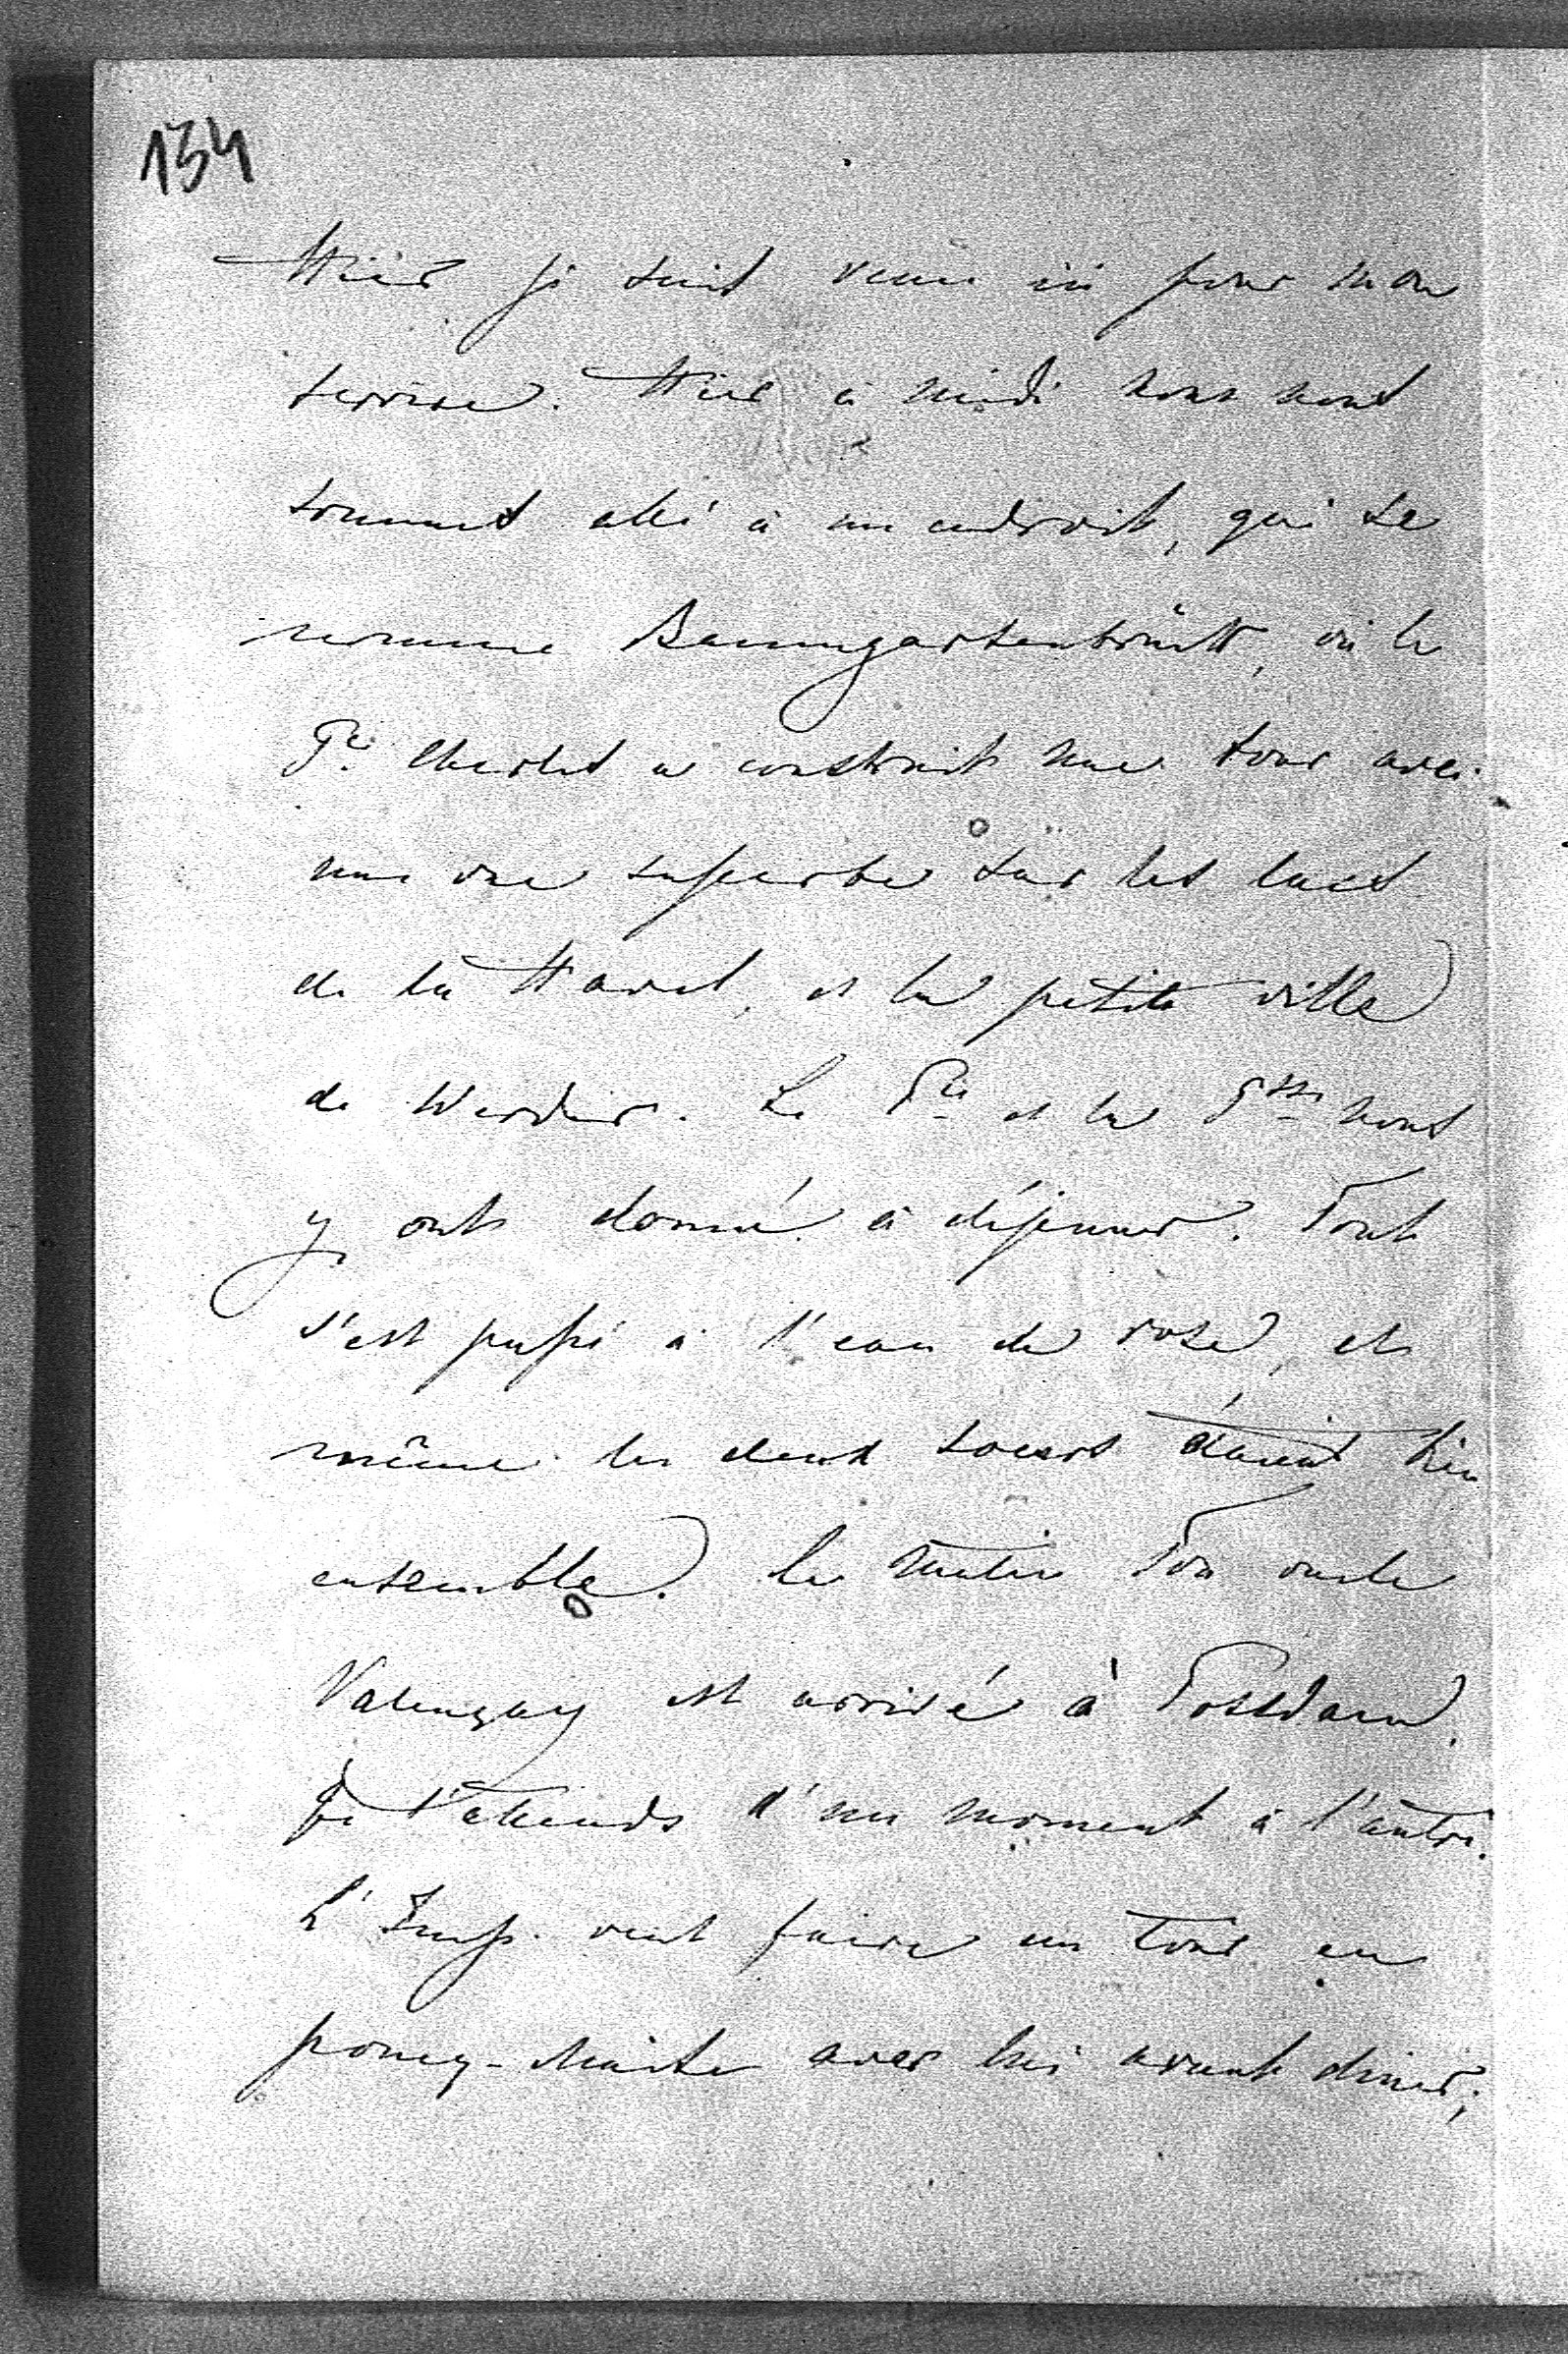 134
Hier je suis venu ici pour mon
service. Hier à midi nous nous
sommes allé à un endroit, qui se
nomme Baumgartenbrück, où le
Pce Charles a construit une tour avec
une vue superbe sur les lacs
de la Havel, et la petite ville
de Werder. Le Pce et la Psse nous
y ont donné à déjeuner. Tout
s'est passé à l'eau de rose, et
même les deux soeurs étaient bien
ensemble. Le matin Ton oncle
Valençay est arrivé à Potsdam.
Je l'attends d'un moment à l'autre.
L'Imp. veut faire un tour en
poney-chaise avec lui avant diner;